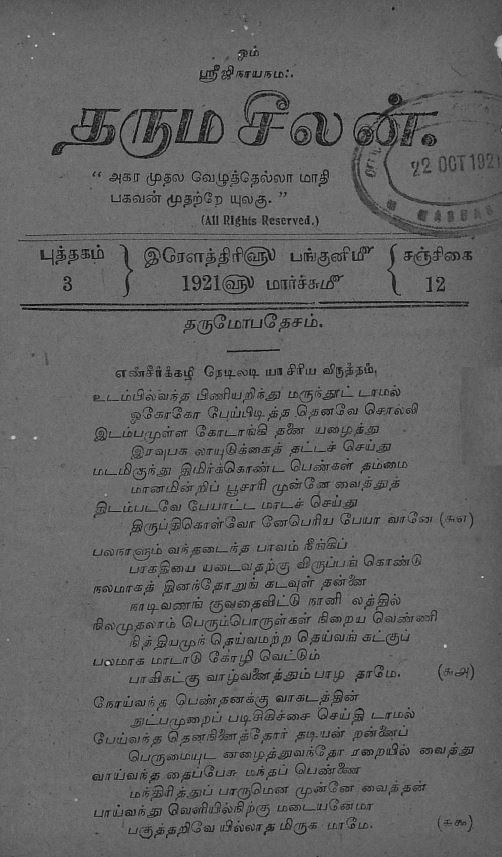 ஓம்
ஸ்ரீஜிநாயநம:.
தரும சீலன்.
22 OCT 1921
MADRAS
“ அகர முதல வெழுத்தெல்லா மாதி
பகவன் முதற்றே யுலகு. ”
(All Rights Reserved.)
புத்தகம்
3
இரௌத்திரி௵ பங்குனிமீ
1921௵ மார்ச்சுமீ
சஞ்சிகை
12
தருமோபதேசம்.
எண்சீர்க்கழி நெடிலடி யாசிரிய விருத்தம்,
உடம்பில்வந்த பிணியறிந்து மருந்தூட் டாமல்
ஓகோகோ பேய்பிடித்த தெனவே சொல்லி
இடம்பமுள்ள கோடாங்கி தனை யழைத்து
இரவுபக லாயுடுக்கைத் தட்டச் செய்து
மடமிகுந்து திமிர்க்கொண்ட பெண்கள் தம்மை
மானமின்றிப் பூசாரி முன்னே வைத்துத்
திடம்படவே பேயாட்ட மாடச் செய்து
திருப்திகொள்வோ னேபெரிய பேயா வானே (௬௭)
பலநாளும் வந்தடைந்த பாவம் நீங்கிப்
பரகதியை யடைவதற்கு விருப்பங் கொண்டு
நலமாகத் தினந்தோறுங் கடவுள் தன்னை
நாடிவணங் குவதைவிட்டு நானி லத்தில்
நிலமுதலாம் பெரும்பொருள்கள் நிறைய வெண்ணி
நித்தியமுந் தெய்வமற்ற தெய்வங் கட்குப்
பலமாக மாடாடு கோழி வெட்டும்
பாவிகட்கு வாழ்வனைத்தும் பாழ தாமே. (௬௮)
நோய்வந்த பெண்தனக்கு வாகடத்தின்
நுட்பமுறைப் படிசிகிச்சை செய்தி டாமல்
பேய்வந்த தெனநினைத்தோர் தடியன் றன்னைப்
பெருமையுட னழைத்துவந்தோ ரறையில் வைத்து
வாய்வந்த தைப்பேசு மந்தப் பெண்ணை
மந்திரித்துப் பாருமென முன்னே வைத்தன்
பாய்வந்து வெளியில்நிற்கு மடையனேமா
பகுத்தறிவே யில்லாத மிருக மாமே. (௬௯)